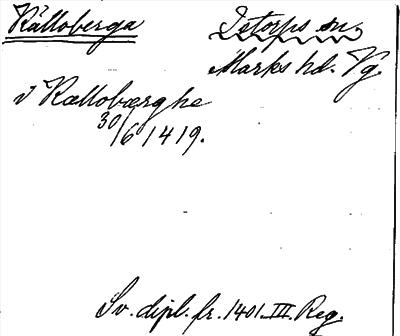 Källoberga
Istorps sn.
Marks hd. Vg.
i Kællobærghe
30/6 1419.
Sv. dipl. fr. 1401. III. Reg.